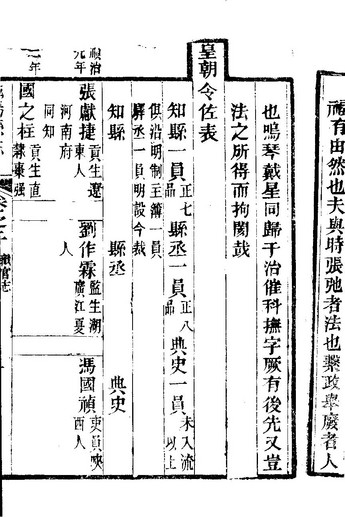 禍有由然也夫與時張弛者法也櫱政舉廢者人
也嗚琴戴星同歸于治催科撫字厥有後先又豈
法之所得而拘閡哉
皇朝令佐表
知縣一員正七品 縣丞一員正八品 典史一員未入流以上
俱沿明制主簿一員
驛丞一員明設今裁
知縣 縣丞 典史
順治元年 張獻捷貢生遼東人 劉作霖監生湖廣江夏人 馮國禎吏員陝西人
河南府同知
二年 國之柱貢生直隸棗强
職官志